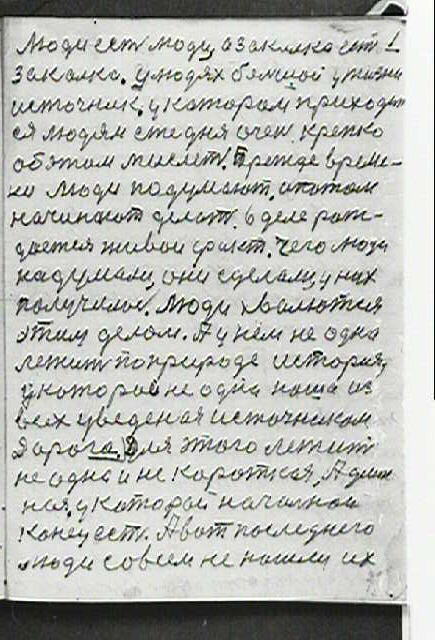 Люди есть люди, а закалка ест 1
закалка. У людях большой у жизни
источник, у котором приходит
ся людям сегодня очен крепко
об этом мыслет. Прежде време-
ни люди подумают, а потом
начинают делат. в деле рож-
дается живой факт. Чего люди
надумали, они сделали, у них
получилос. Люди хвалются
этим делом. А у нём не одна
лежит по природе история,
у которой не одна наша из
всех уведеная источником
дорога. Для этого лежит
не одна и не короткая, А длин
ная, у которой началной
конец ест. А вот последнего
люди совсем не нашли их